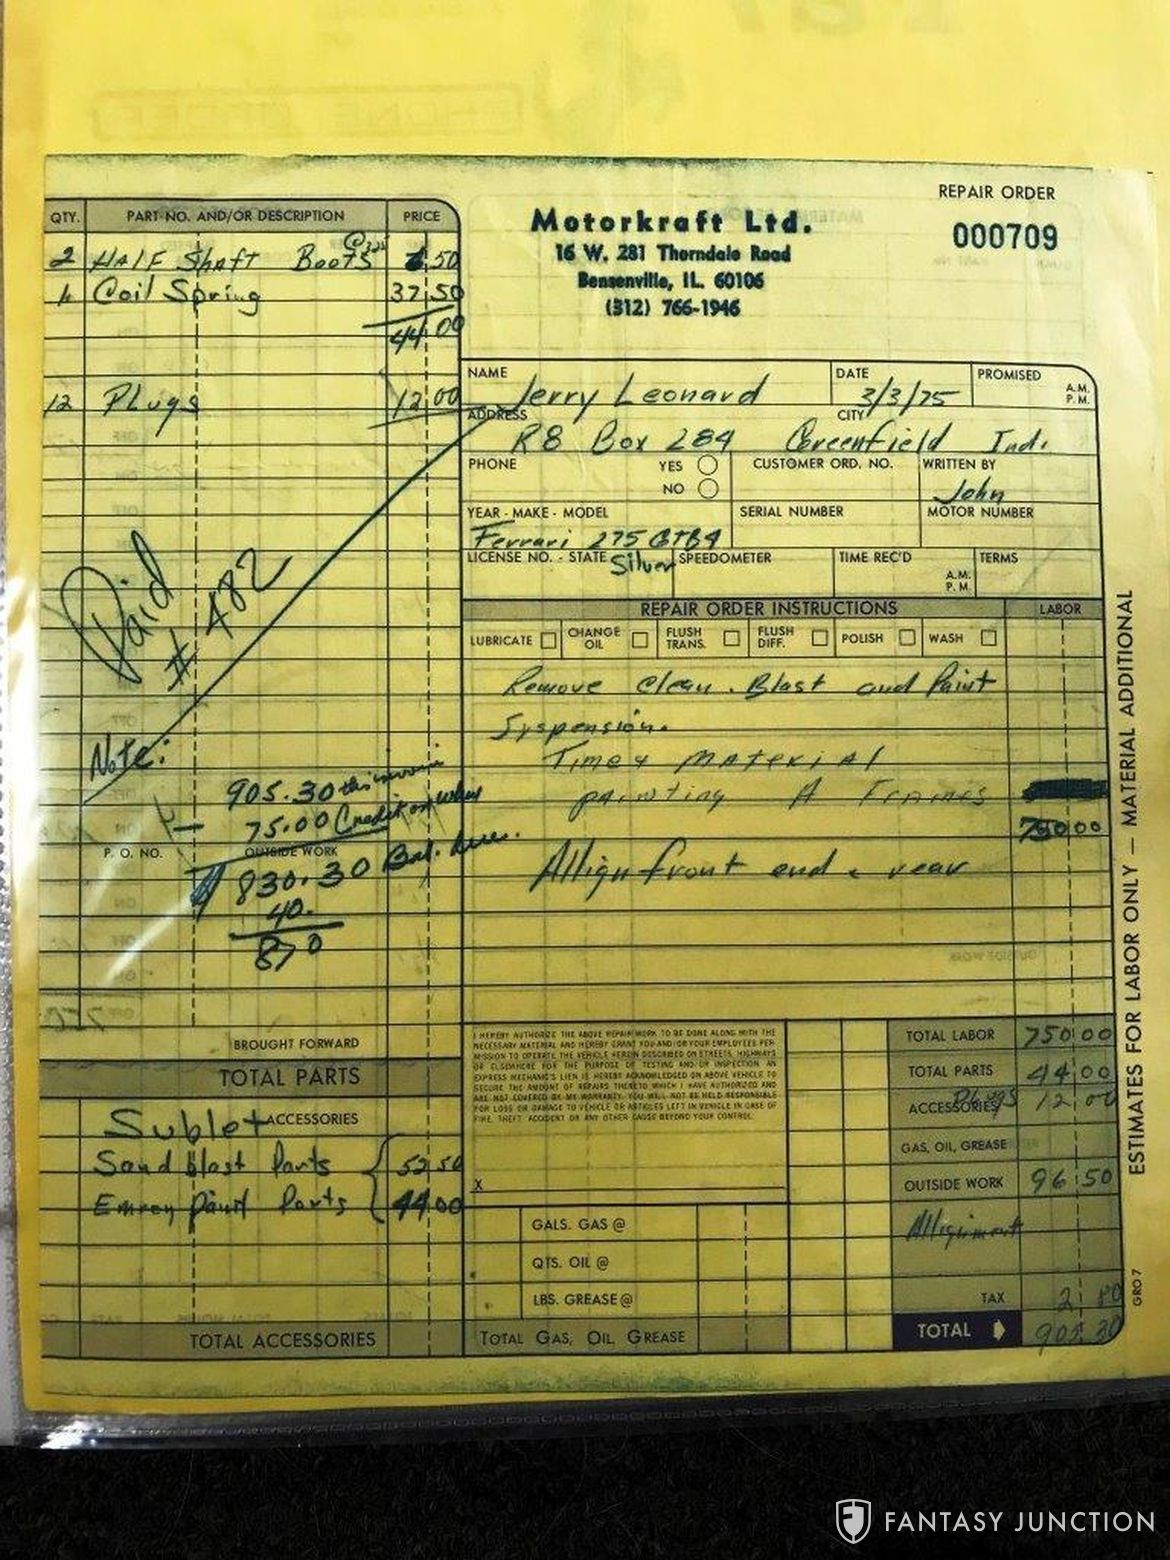 REPAIR ORDER
000709
Motorkraft Ltd.
16 W. 281 Thorndale Road
Bensenville, IL. 60106
(312) 766-1946
QTY. PART NO. AND/OR DESCRIPTION PRICE
2 HALF Shaft Boots @3.25 6 50
1 Coil Spring 37 50
44 00
12 PLugs 12 00
Paid
# 482
Note:
905.30 this invoice
75.00 Credit on
P. O. NO. OUTSIDE WORK
830.30 Bal. due.
40.
870
BROUGHT FORWARD
TOTAL PARTS
Sublet ACCESSORIES
Sand blast Parts 52 50
paint Parts 44 00
TOTAL ACCESSORIES
NAME Jerry Leonard DATE 3/3/75 PROMISED A.M. P.M.
ADDRESS R8 Box 284 CITY Greenfield Ind.
PHONE YES NO CUSTOMER ORD. NO. WRITTEN BY John
YEAR - MAKE - MODEL Ferrari 275 GTB4 SERIAL NUMBER MOTOR NUMBER
LICENSE NO. - STATE Silver SPEEDOMETER TIME REC'D A.M. P.M. TERMS
REPAIR ORDER INSTRUCTIONS LABOR
LUBRICATE CHANGE OIL FLUSH TRANS. FLUSH DIFF. POLISH WASH
Remove Clean. Blast and Paint
Suspension.
Time & MATERIAL
painting A Frames
750 00
Allign front end & rear
I HEREBY AUTHORIZE THE ABOVE REPAIR WORK TO BE DONE ALONG WITH THE
NECESSARY MATERIAL AND HEREBY GRANT YOU AND/OR YOUR EMPLOYEES PER-
MISSION TO OPERATE THE VEHICLE HEREIN DESCRIBED ON STREETS, HIGHWAYS
OR ELSEWHERE FOR THE PURPOSE OF TESTING AND/OR INSPECTION. AN
EXPRESS MECHANIC'S LIEN IS HEREBY ACKNOWLEDGED ON ABOVE VEHICLE TO
SECURE THE AMOUNT OF REPAIRS THERETO WHICH I HAVE AUTHORIZED AND
ARE NOT COVERED BY MY WARRANTY. YOU WILL NOT BE HELD RESPONSIBLE
FOR LOSS OR DAMAGE TO VEHICLE OR ARTICLES LEFT IN VEHICLE IN CASE OF
FIRE, THEFT, ACCIDENT OR ANY OTHER CAUSE BEYOND YOUR CONTROL.
X
GALS. GAS @
QTS. OIL @
LBS. GREASE @
TOTAL GAS, OIL, GREASE
TOTAL LABOR 750 00
TOTAL PARTS 44 00
ACCESSORIES Plugs 12 00
GAS, OIL, GREASE
OUTSIDE WORK 96 50
Allignment
TAX 2 80
TOTAL 905 30
ESTIMATES FOR LABOR ONLY — MATERIAL ADDITIONAL
GRO7
FANTASY JUNCTION